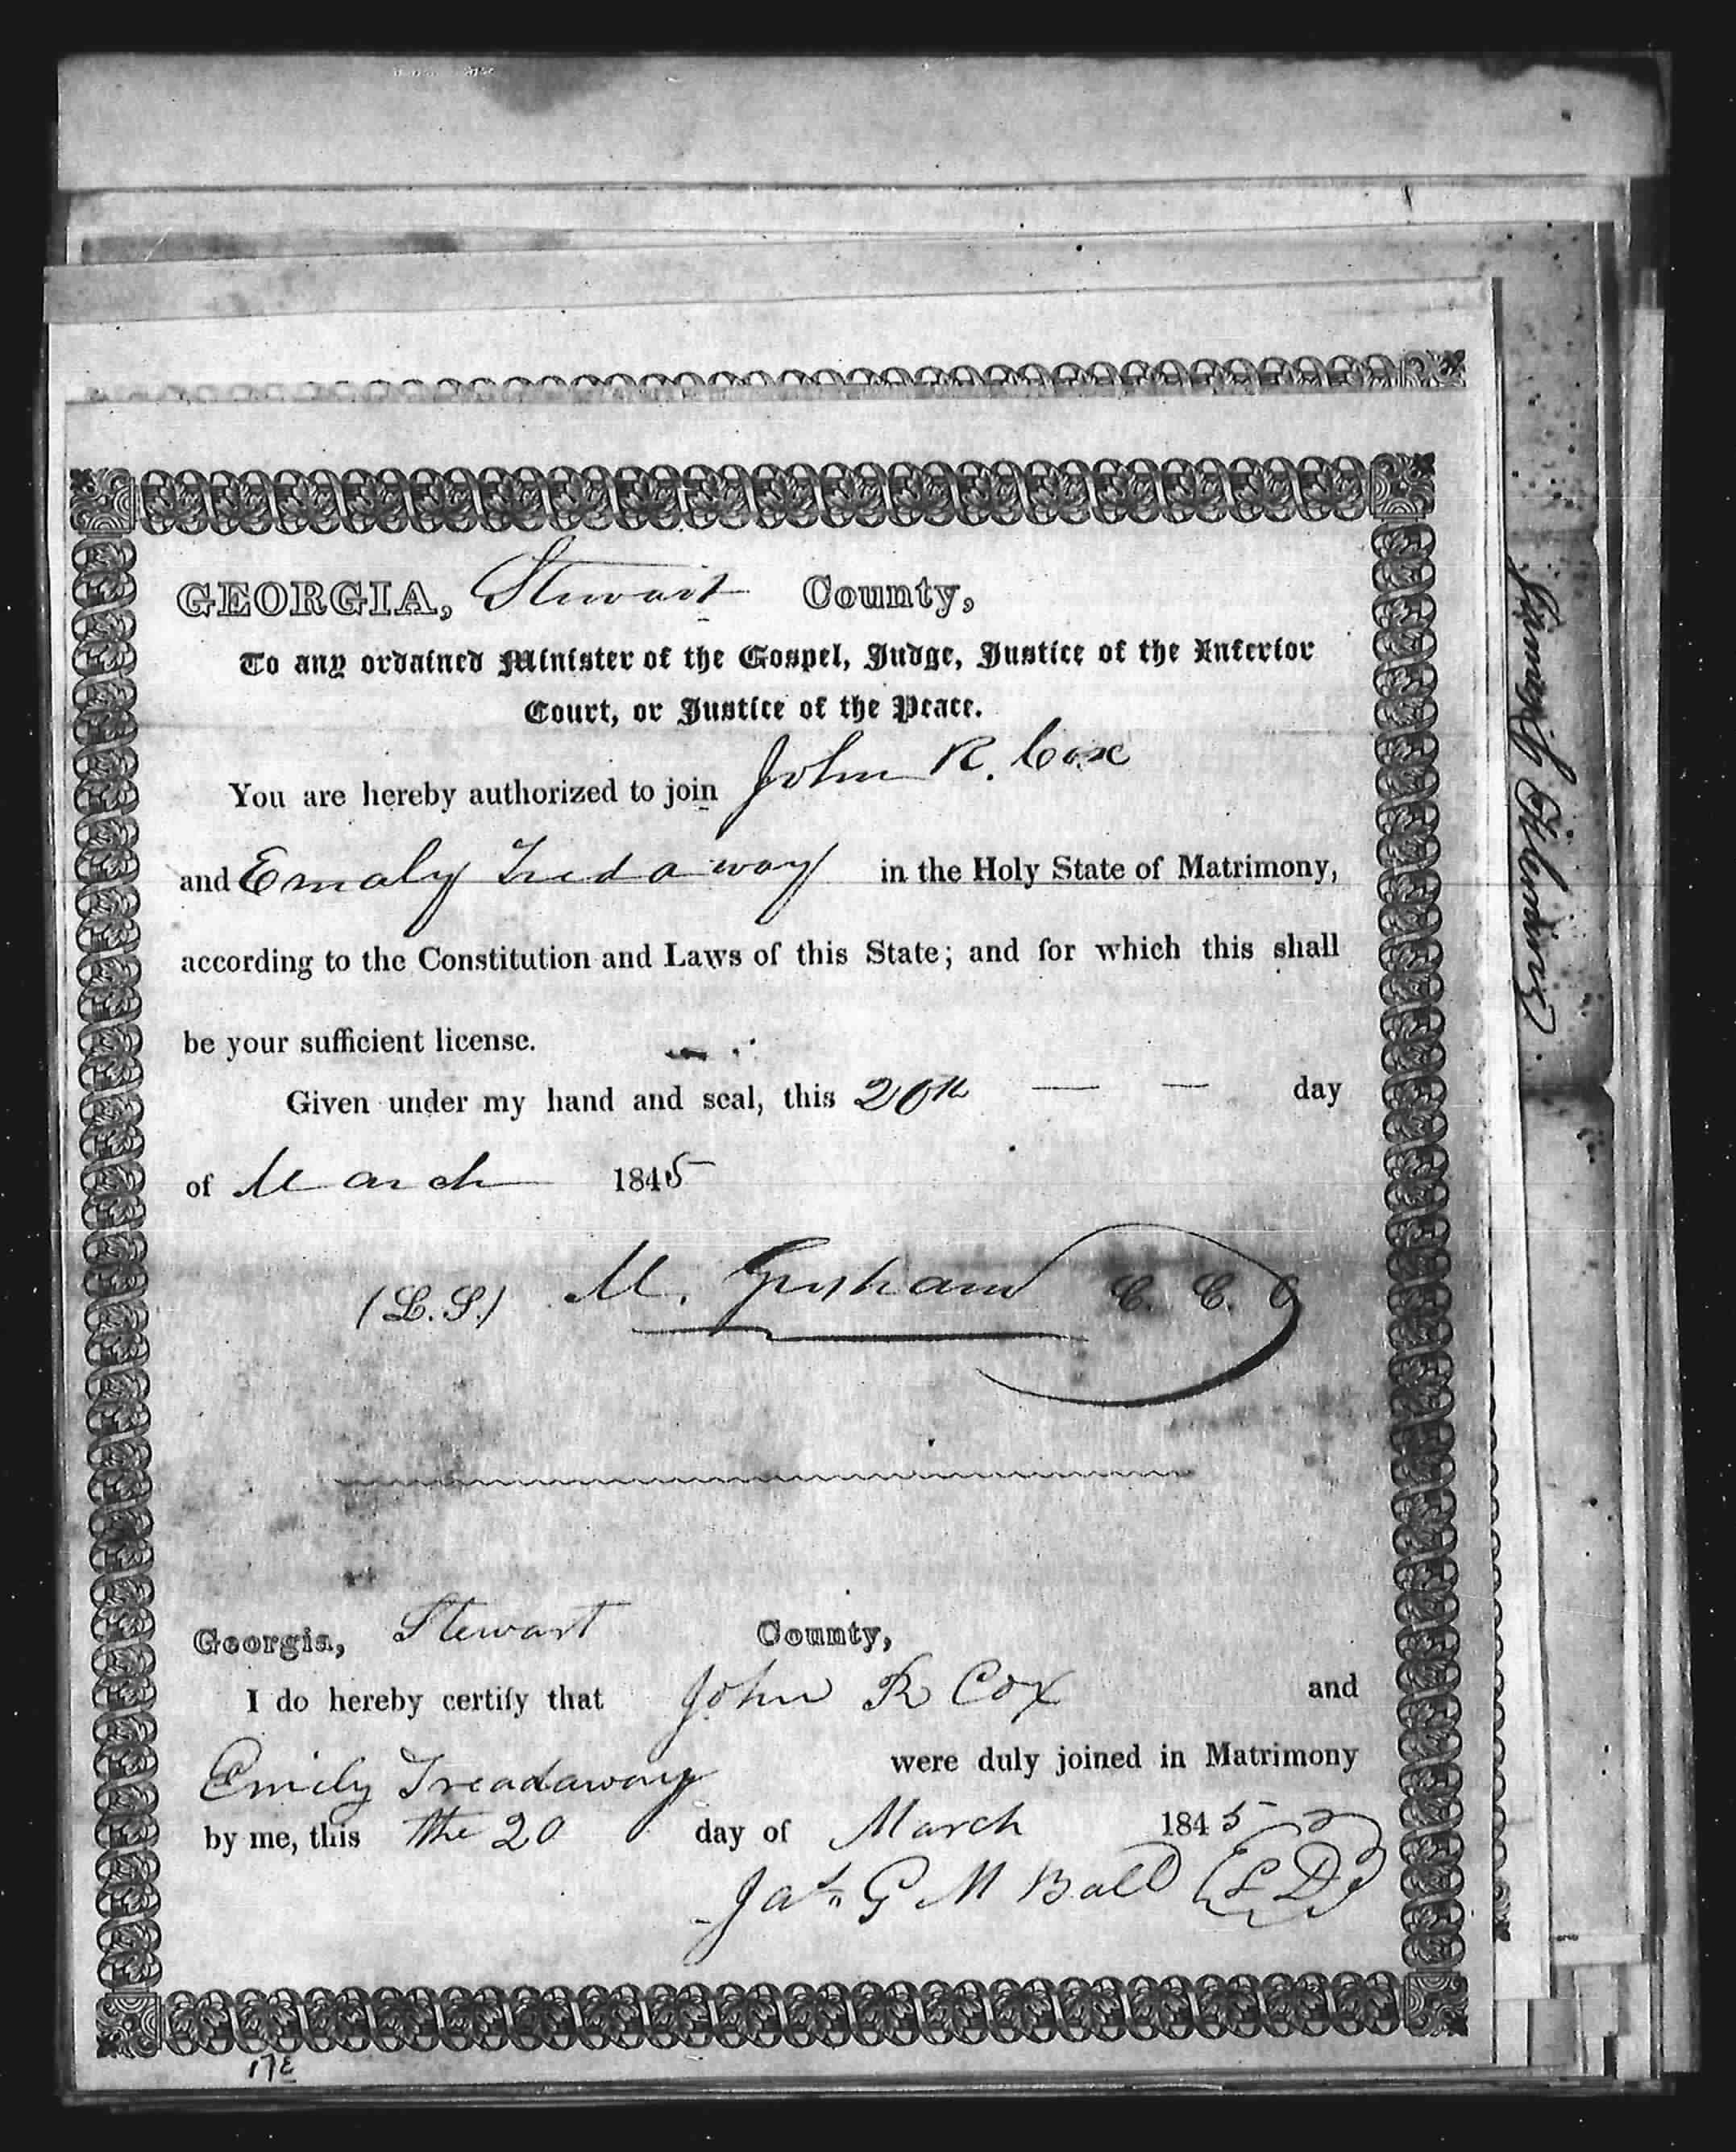 GEORGIA, Stewart County,
To any ordained Minister of the Gospel, Judge, Justice of the Inferior
Court, or Justice of the Peace.
You are hereby authorized to join John R. Cox
and Emaly Tredaway in the Holy State of Matrimony,
according to the Constitution and Laws of this State; and for which this shall
be your sufficient license.
Given under my hand and seal, this 20th — — day
of March 1845
(L.S.) M. Gresham C. C. O
Georgia, Stewart County,
I do hereby certify that John R Cox and
Emily Treadaway were duly joined in Matrimony
by me, this the 20 day of March 1845
Jas. G M Ball